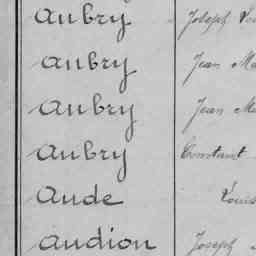 Aubry Joseph
Aubry Jean
Aubry Jean
Aubry Constant
Aude Louis
Audion Joseph